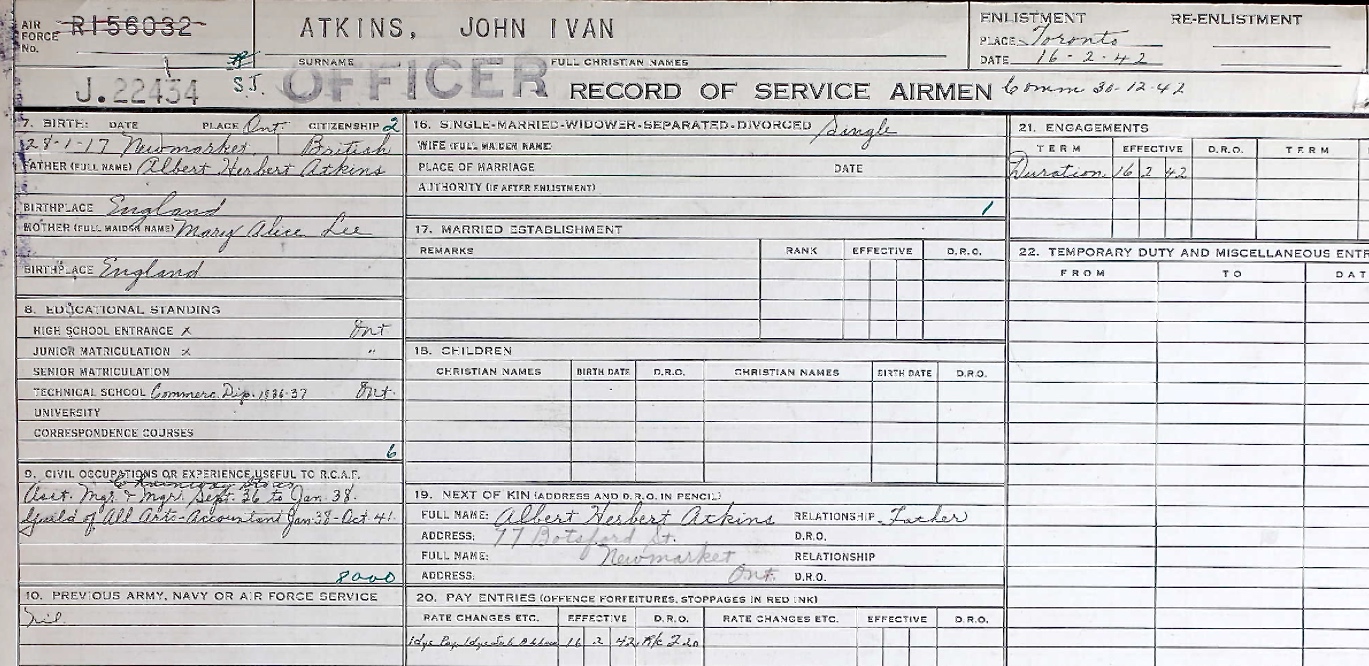 AIR FORCE No. R156032
ATKINS, JOHN IVAN
SURNAME FULL CHRISTIAN NAMES
ENLISTMENT RE-ENLISTMENT
PLACE Toronto
DATE 16-2-42
J.22434 S.J. OFFICER RECORD OF SERVICE AIRMEN Comm 30-12-42
7. BIRTH: DATE PLACE Ont. CITIZENSHIP 2
28-1-17 Newmarket British
FATHER (FULL NAME) Albert Herbert Atkins
BIRTHPLACE England
MOTHER (FULL MAIDEN NAME) Mary Alice Lee
BIRTHPLACE England
8. EDUCATIONAL STANDING
HIGH SCHOOL ENTRANCE x Ont
JUNIOR MATRICULATION x "
SENIOR MATRICULATION
TECHNICAL SCHOOL Commerc. Dip. 1936-37 Ont.
UNIVERSITY
CORRESPONDENCE COURSES
6
9. CIVIL OCCUPATIONS OR EXPERIENCE USEFUL TO R.C.A.F.
Stores
Asst. Mgr. & Mgr. Sept. 36 to Jan. 38.
Guild of All Arts-Accountant Jan-38-Oct 41.
8000
10. PREVIOUS ARMY, NAVY OR AIR FORCE SERVICE
Nil.
16. SINGLE-MARRIED-WIDOWER-SEPARATED-DIVORCED Single
WIFE (FULL MAIDEN NAME)
PLACE OF MARRIAGE DATE
AUTHORITY (IF AFTER ENLISTMENT)
1
17. MARRIED ESTABLISHMENT
REMARKS RANK EFFECTIVE D.R.O.
18. CHILDREN
CHRISTIAN NAMES BIRTH DATE D.R.O. CHRISTIAN NAMES BIRTH DATE D.R.O.
19. NEXT OF KIN (ADDRESS AND D.R.O. IN PENCIL)
FULL NAME: Albert Herbert Atkins RELATIONSHIP Father
ADDRESS: 77 Botsford St. D.R.O.
FULL NAME: Newmarket RELATIONSHIP
ADDRESS: Ont. D.R.O.
20. PAY ENTRIES (OFFENCE FORFEITURES, STOPPAGES IN RED INK)
RATE CHANGES ETC. EFFECTIVE D.R.O. RATE CHANGES ETC. EFFECTIVE D.R.O.
16 2 42
21. ENGAGEMENTS
TERM EFFECTIVE D.R.O. TERM
Duration 16 2 42
22. TEMPORARY DUTY AND MISCELLANEOUS ENTR
FROM TO DAT